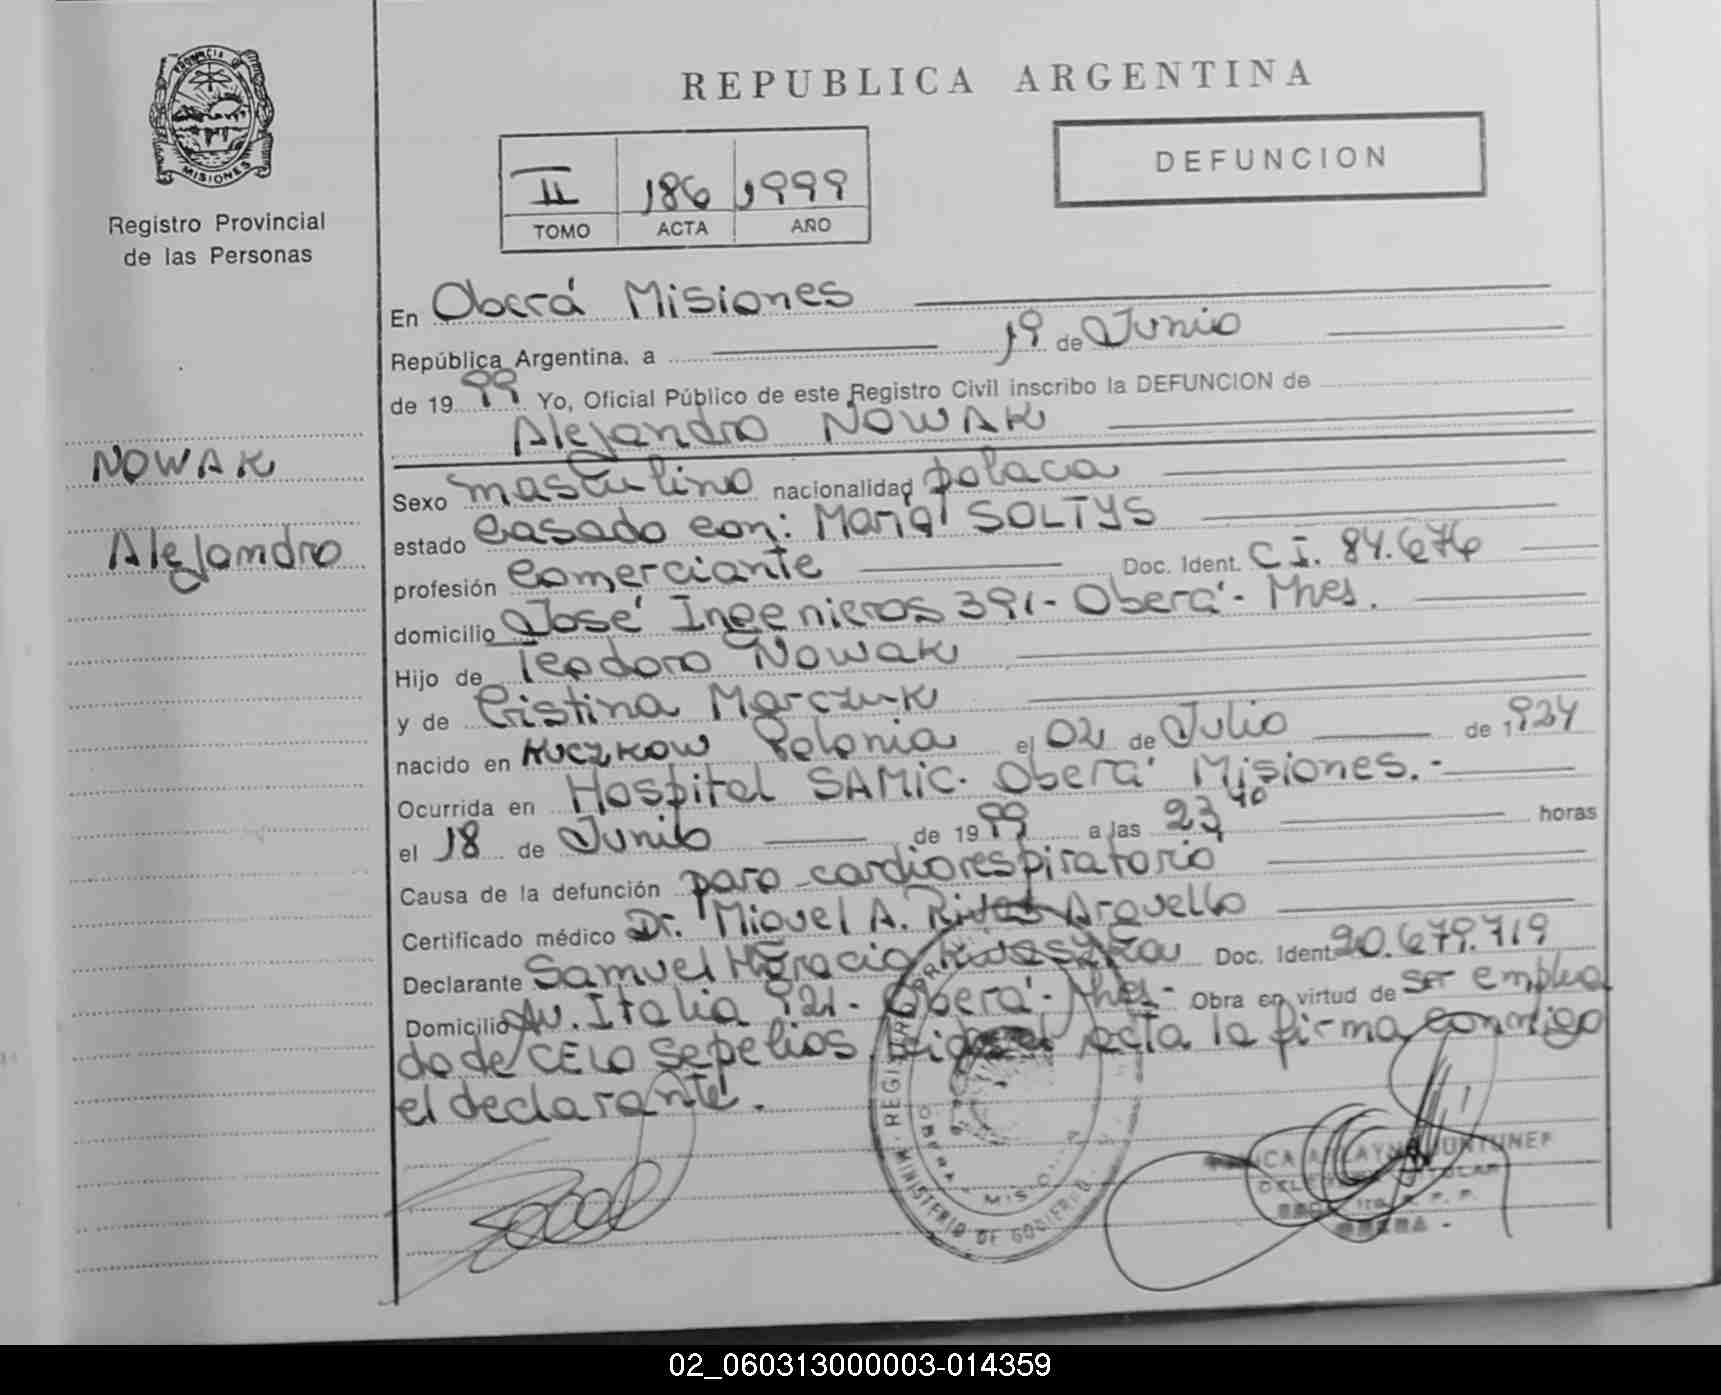 PROVINCIA DE
MISIONES
Registro Provincial
de las Personas
NOWAK
Alejandro
REPUBLICA ARGENTINA
DEFUNCION
II 186 1999
TOMO ACTA AÑO
En Oberá Misiones
República Argentina, a 19 de Junio
de 19 99 Yo, Oficial Público de este Registro Civil inscribo la DEFUNCION de
Alejandro NOWAK
Sexo masculino nacionalidad polaca
estado casado con: María SOLTYS
profesión comerciante Doc. Ident. C.I. 84.676
domicilio José Ingenieros 391- Oberá- Mnes.
Hijo de Teodoro Nowak
y de Cistina Marczuk
nacido en KUCZKOW Polonia el 02 de Julio de 1924
Ocurrida en Hospital SAMIC- Oberá Misiones.-
el 18 de Junio de 19 99 a las 23,40 horas
Causa de la defunción paro cardiorespiratorio
Certificado médico Dr. Miguel A. Rivas Arguello
Declarante Samuel Horacio Doc. Ident. 20.679.719
Domicilio Av. Italia 921- Oberá- Mnes- Obra en virtud de ser emplea
do de CELO Sepelios. acta la firma conmigo
el declarante.
MINISTERIO DE GOBIERNO
02_060313000003-014359